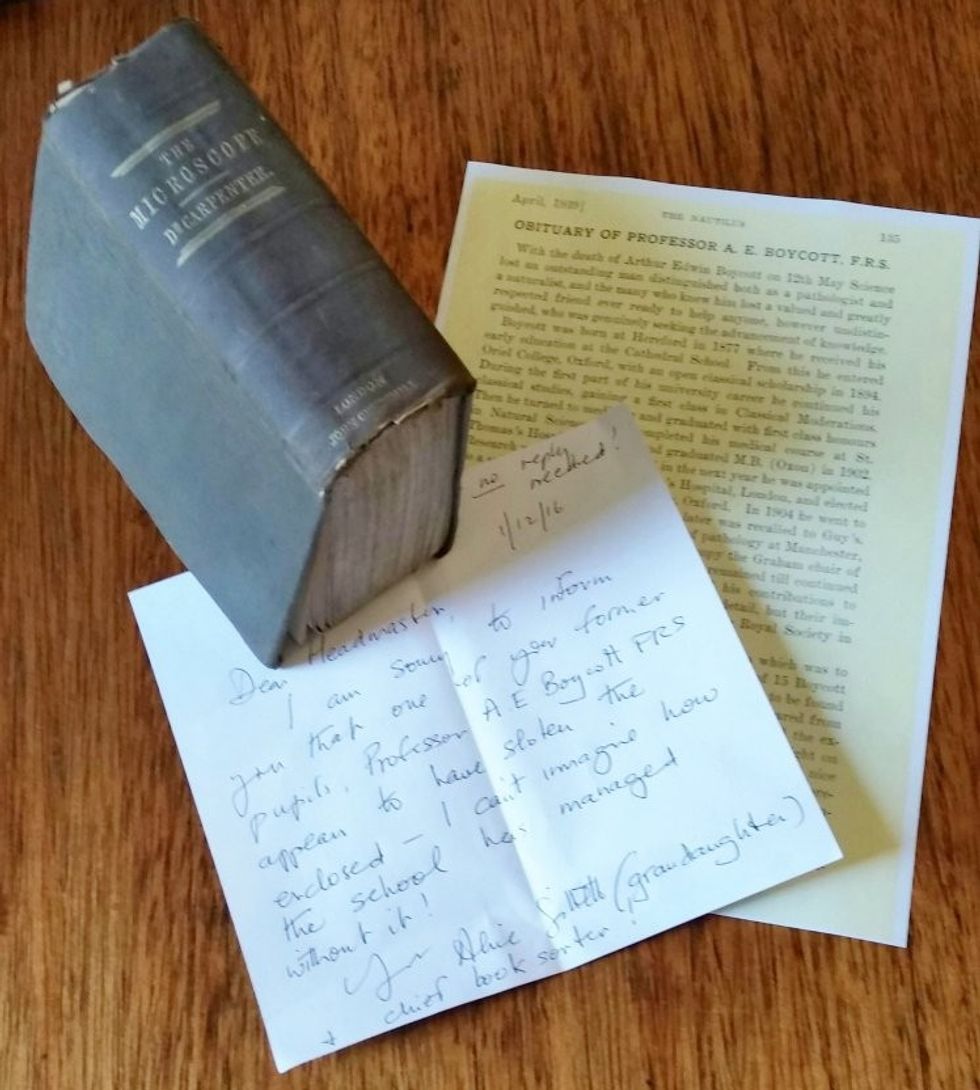 THE
MICROSCOPE
DR CARPENTER.
LONDON
JOHN
April, 1939]
THE NAUTILUS
135
OBITUARY OF PROFESSOR A. E. BOYCOTT, F.R.S.
With the death of Arthur Edwin Boycott on 12th May Science
lost an outstanding man distinguished both as a pathologist and
a naturalist, and the many who knew him lost a valued and greatly
respected friend ever ready to help anyone, however undistin-
guished, who was genuinely seeking the advancement of knowledge.
Boycott was born at Hereford in 1877 where he received his
early education at the Cathedral School. From this he entered
Oriel College, Oxford, with an open classical scholarship in 1894.
During the first part of his university career he continued his
classical studies, gaining a first class in Classical Moderations.
Then he turned to and graduated with first class honours
in Natural completed his medical course at St.
Thomas's graduated M.B. (Oxon) in 1902.
in the next year he was appointed
's Hospital, London, and elected
Oxford. In 1904 he went to
later was recalled to Guy's.
of pathology at Manchester,
the Graham chair of
remained till continued
his contributions to
detail, but their im-
Royal Society in
which was to
of 15 Boycott
to be found
from
the ex-
on
nice
no reply
needed!
1/12/16
Dear Headmaster,
I am sorry to inform
you that one of your former
pupils, Professor A E Boycott FRS
appears to have stolen the
enclosed – I can't imagine how
the school has managed
without it!
Alice Gillett (grandaughter)
+ chief book sorter!